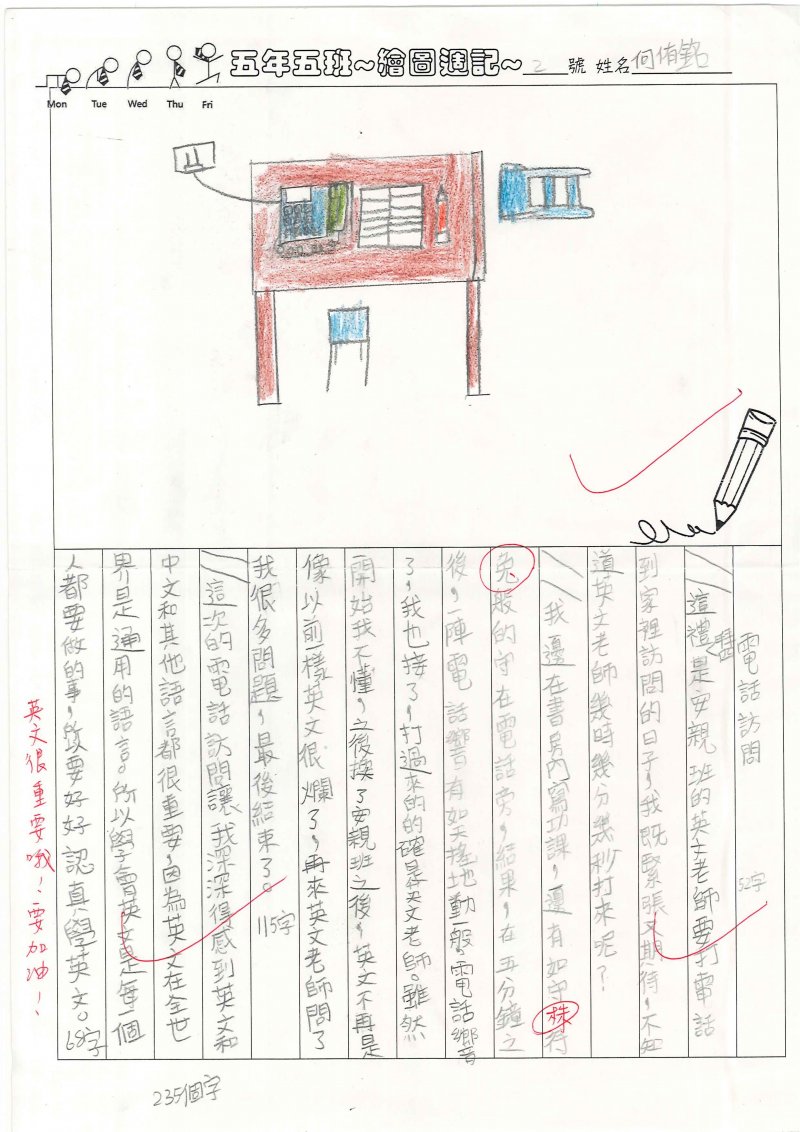 五年五班~繪圖週記~ 2 號 姓名 何侑銘
Mon Tue Wed Thu Fri
電話訪問 52字
這禮是安親班的英文老師要打電話
到家裡訪問的日子,我既緊張又期待,不知
道英文老師幾時幾分幾秒打來呢?
我邊在書房內寫功課,邊有如守株待
兔般的守在電話旁,結果,在五分鐘之
後,一陣電話響有如天搖地動一般,電話響
了,我也接了,打過來的的確是英文老師。雖然
一開始我不懂,之後換了安親班之後,英文不再是
像以前一樣英文很爛了,再來英文老師問了
我很多問題,最後結束了。 115字
這次的電話訪問讓我深深得感到英文和
中文和其他語言都很重要,因為英文在全世
界是通用的語言。所以學會英文是每一個
人都要做的事,所以要好好認真學英文。 68字
英文很重要哦!要加油!
235個字